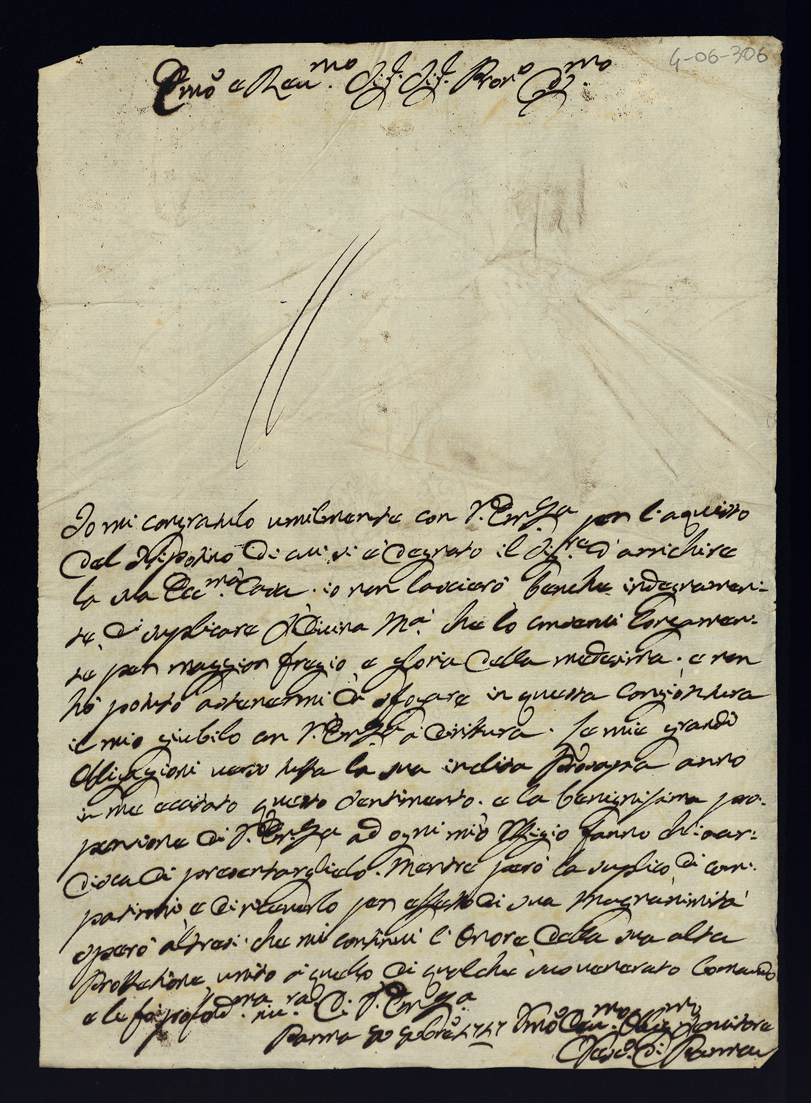 4-06-306
Emo e Reumo Sig. Sig. Pron. Colmo
Io mi congratulo umilmente con V. Emza per l'aquisto
del Nipotino di cui si è degnato il Sigre d'arrichire
la sua Eccma Casa. io non lascierò benche indegnamen-
te, di suplicare S. Divina Mà. che lo conservi longamen-
te per maggior fregio e gloria della medesima. e non
hò potuto astenermi di sfogare in questa congiontura
il mio giubilo con V. Emza à diritura. Le mie grandi
Obligazioni verso tutta la sua inclita Prosapia anno
in me eccitato questo sentimento. e la benignissima pro-
pensione di V. Emza ad ogni mio Ufizio fanno ch'io ar-
disca di presentarglielo. Mentre però la suplico di com-
patirmi e di riceverlo per effetto di sua Magranimità
sperò altresi che mi continui l'Onore della sua alta
Protezione unito à quello di qualche suo venerato Comando
e le fò profondma riu. Di V. Emza
Parma 1747 Umo Deumo Servitore
Vesco. di Parma